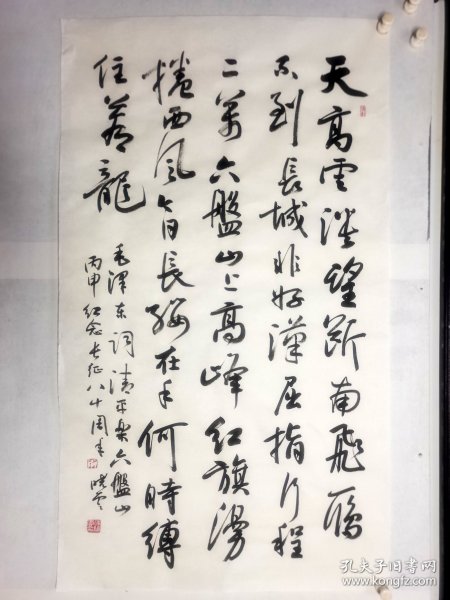 天高雲淡望斷南飛雁
不到長城非好漢屈指行程
二萬六盤山上高峰紅旗漫
捲西風今日長纓在手何時縛
住蒼龍
毛澤东詞清平樂六盤山
丙申紀念长征八十周年曉雲
孔夫子旧书网
www.kongfz.com